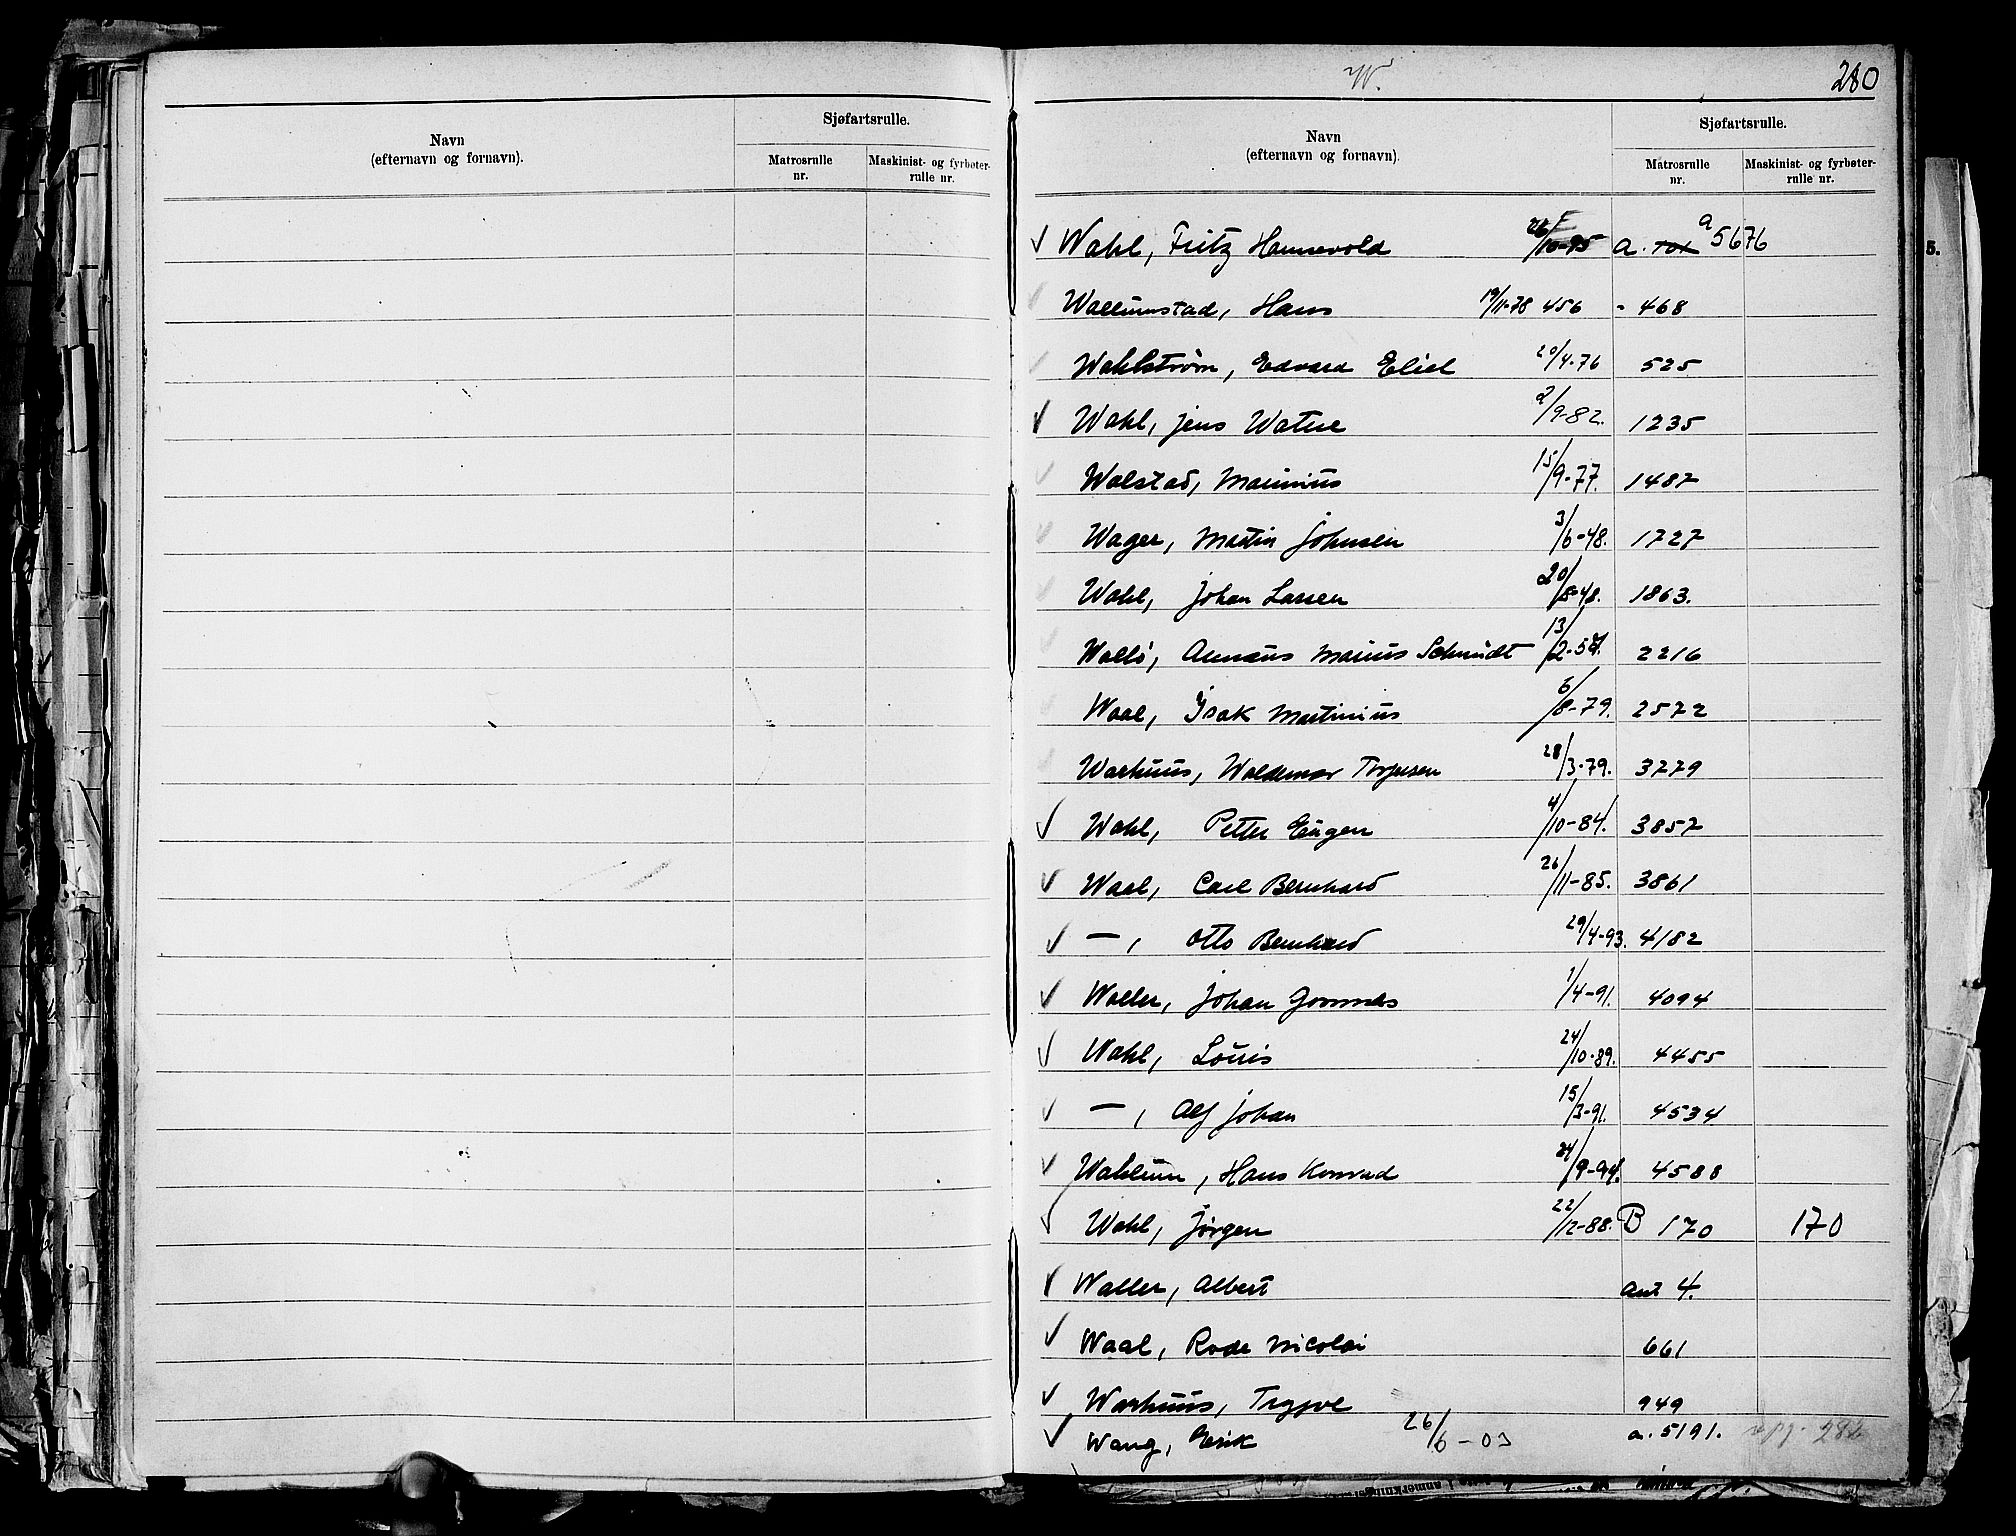 Navn
(efternavn og fornavn).
Sjøfartsrulle.
Matrosrulle
nr.
Maskinist- og fyrbøter-
rulle nr.
W.
280
Navn
(efternavn og fornavn).
Sjøfartsrulle.
Matrosrulle
nr.
Maskinist- og fyrbøter-
rulle nr.
✓ Wahl, Fritz Hannevold 26/10-95 a. a 5676
✓ Wallumstad, Hans 19/11-78 456 - 468
✓ Wahlstrøm, Edvard Eliel 20/4-76 525
✓ Wahl, Jens Watne 2/9-82. 1235
✓ Walstad, Marinius 15/9-77. 1487
✓ Wager, Martin Johnsen 3/6-48. 1727
✓ Wahl, Johan Larsen 20/8-48. 1863.
✓ Wallö, Annæus Marius Schmidt 13/2-54. 2216
✓ Waal, Isak Martinius 6/8-79. 2572
✓ Warhuus, Waldemar Torjusen 28/3-79. 3779
✓ Wahl, Petter Eugen 4/10-84. 3857
✓ Waal, Carl Bernhard 26/11-85. 3861
✓ —, Otto Bernhard 29/4-93. 4182
✓ Waller, Johan 1/4-91. 4094
✓ Wahl, Louis 24/10-89. 4455
✓ —, Alf Johan 15/3-91. 4534
✓ Wahlum, Hans Konrad 24/9-94. 4588
✓ Wahl, Jørgen 22/12-88. B 170 170
✓ Waller, Albert ant 4.
✓ Waal, Rode Nicolai 661
✓ Warhuus, Trygve 949
✓ Wang, Erik 26/6-03 a. 5191.
5.